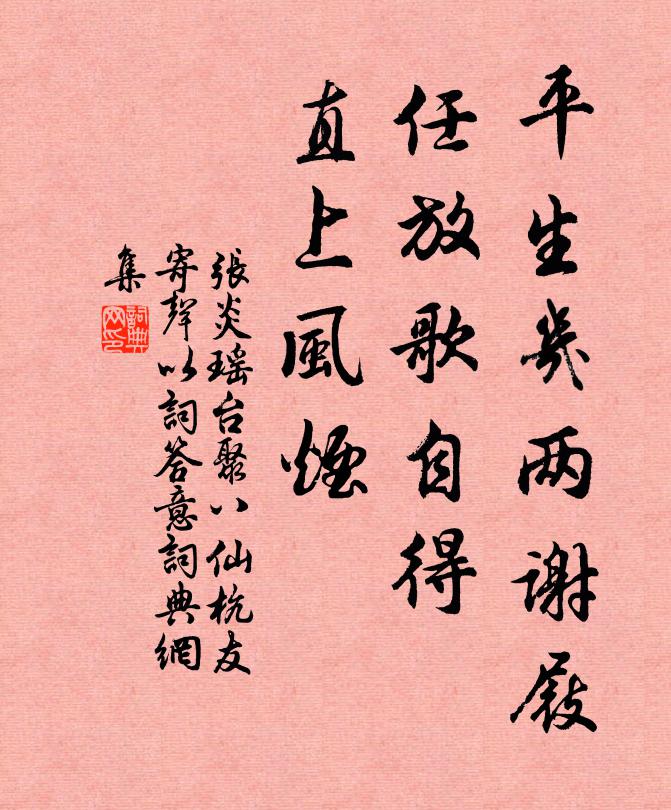 平生幾两谢屐
任放歌自得
直上風煙
張炎瑶台聚八仙杭友
寄聲以詞答意詞典網
集
詞典
网印